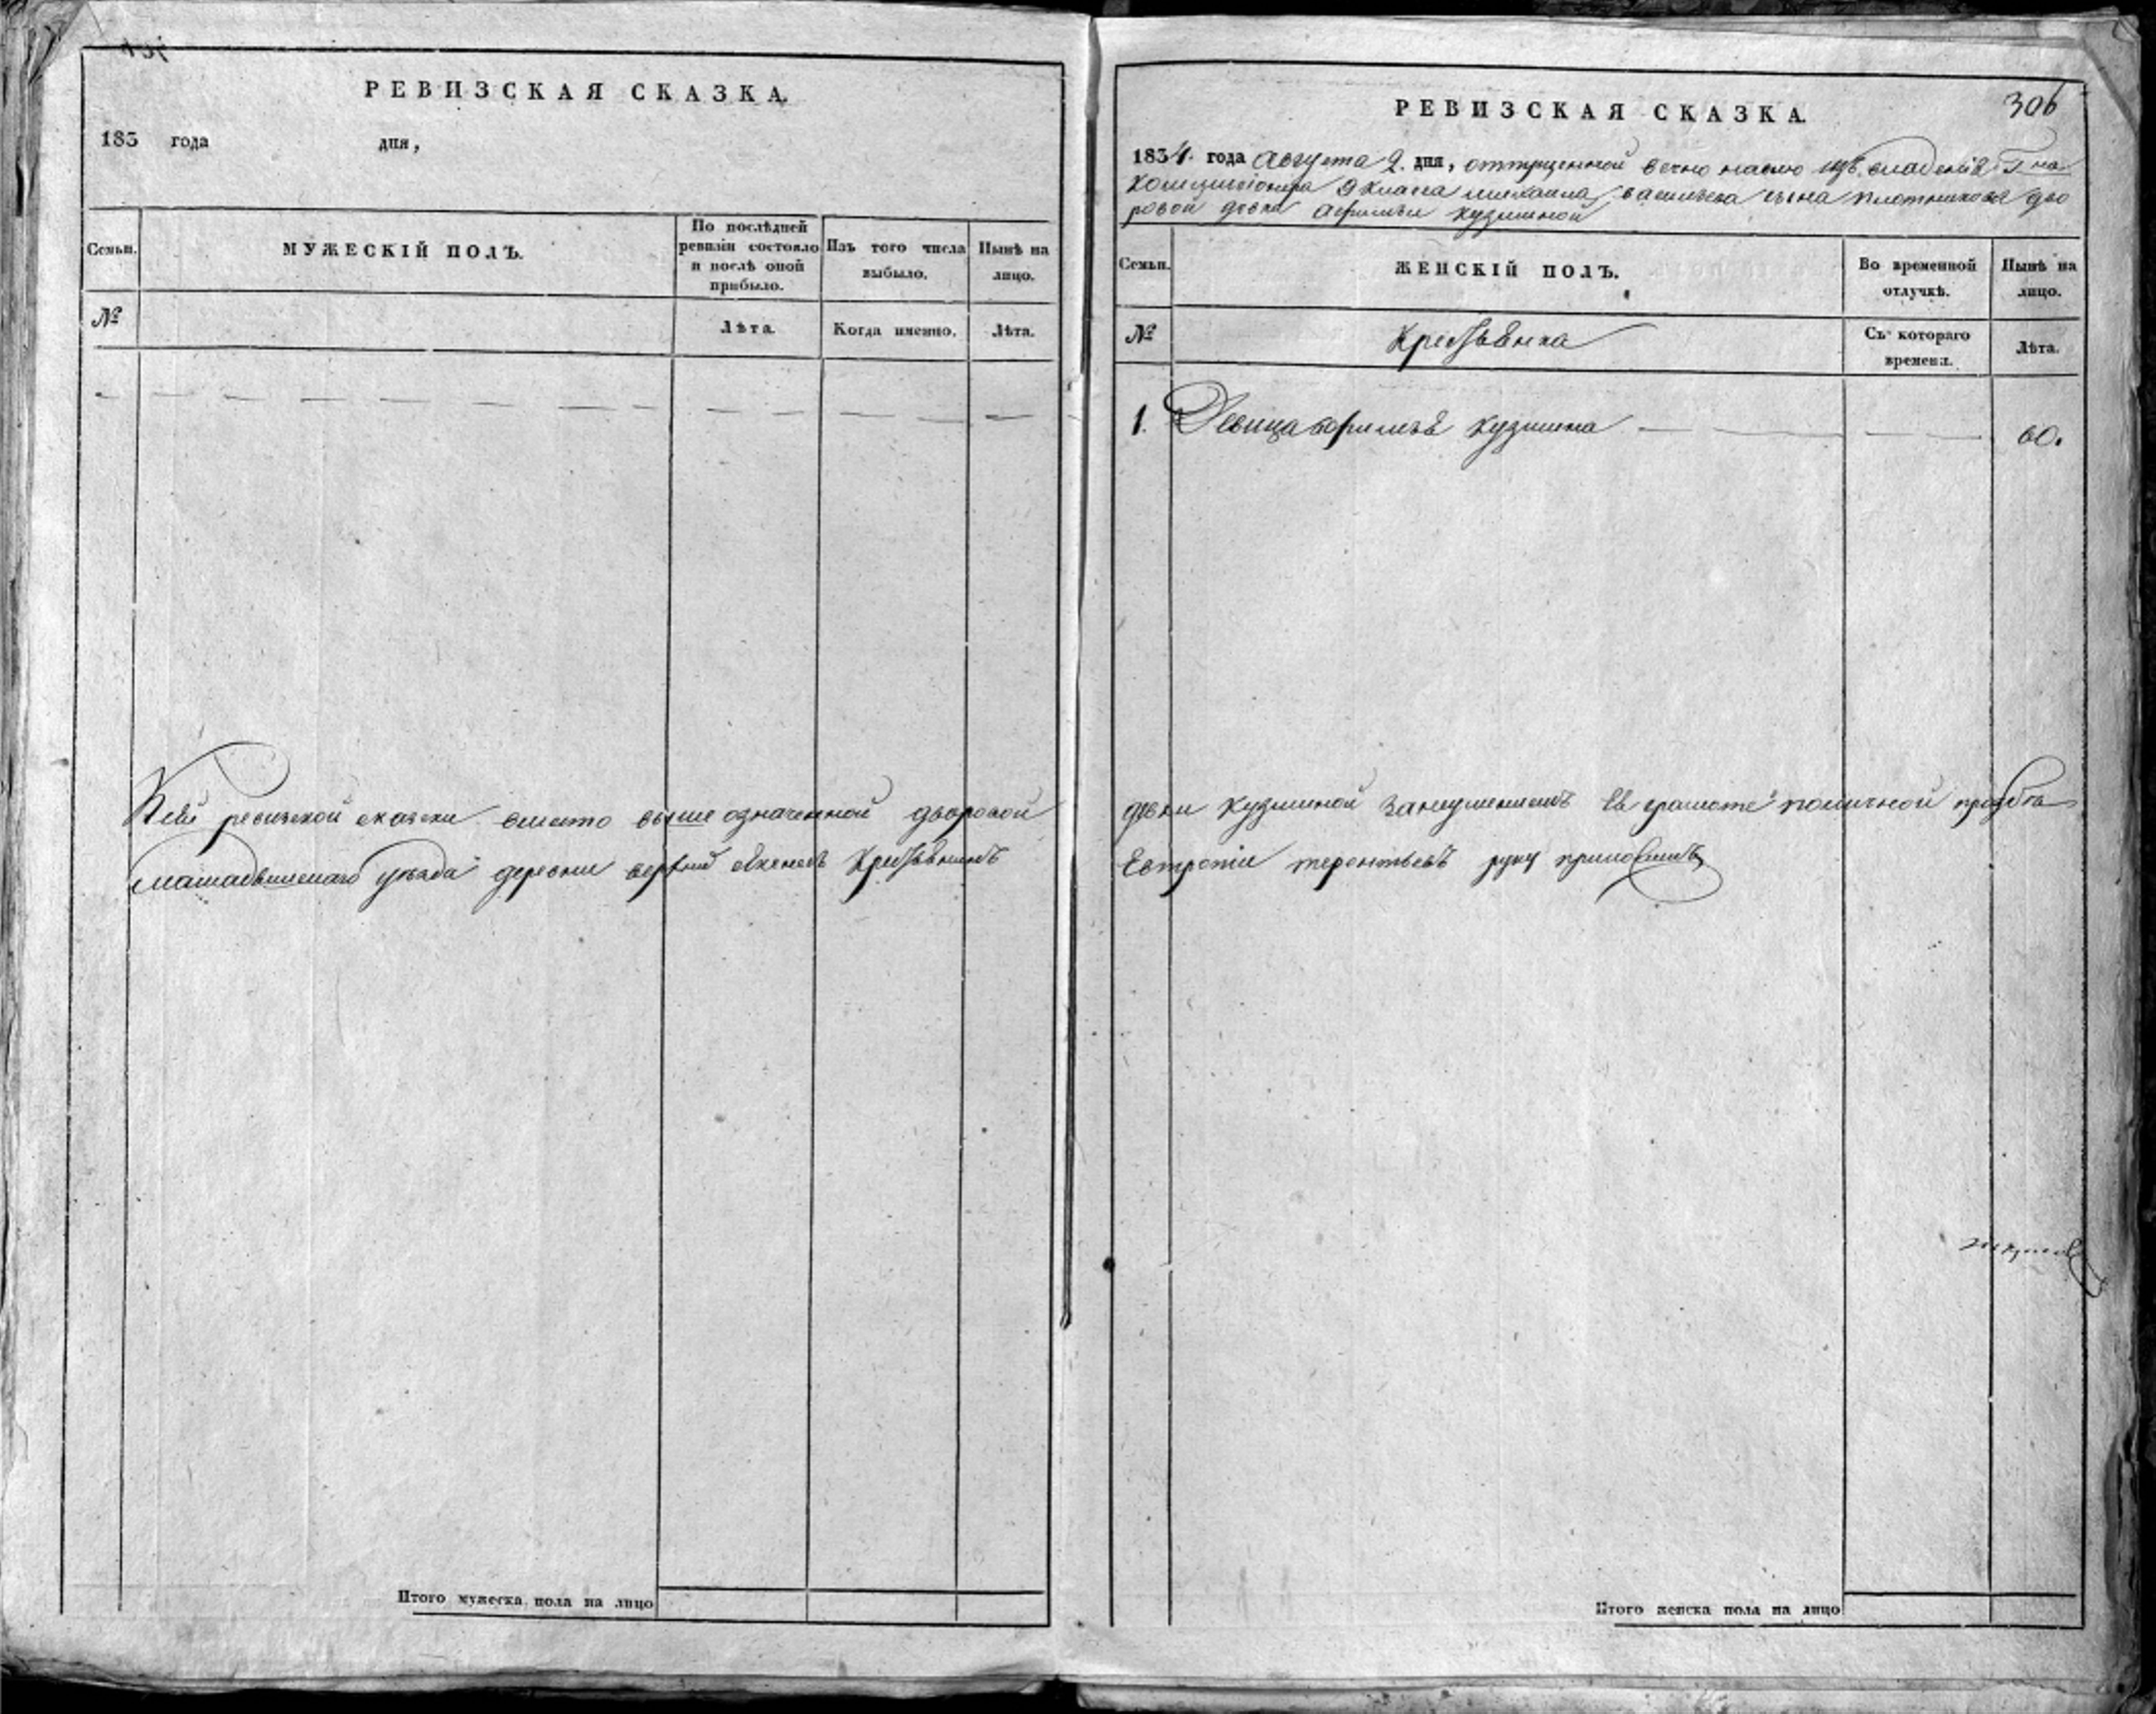 РЕВИЗСКАЯ СКАЗКА.
183 года дня,
Семьи.
МУЖЕСКІЙ ПОЛЪ.
По послѣдней
ревизіи состояло
и послѣ оной
прибыло.
Изъ того числа
выбыло.
Нынѣ на
лицо.
№
Лѣта.
Когда именно.
Лѣта.
ревизской сказки вместо выше означенной дворовой
уезда деревни крестьянинъ
Итого мужеска пола на лицо
306
РЕВИЗСКАЯ СКАЗКА.
1834. года Августа 2. дня, отпущенной вечно наволю изъ владенія Г на
комиционера 9 класса михаила васильева сына плотникова дво
ровой девки афимьи кузминой
Семьи.
ЖЕНСКІЙ ПОЛЪ.
Во временной
отлучкѣ.
Нынѣ на
лицо.
№
Крестьянка
Съ котораго
времени.
Лѣта.
1. Девица афимья кузмина 60.
девки кузминой занеумениемъ Ея грамоте поличной прозбѣ
Евтропіи терентьевъ руку приложилъ
Итого женска пола на лицо